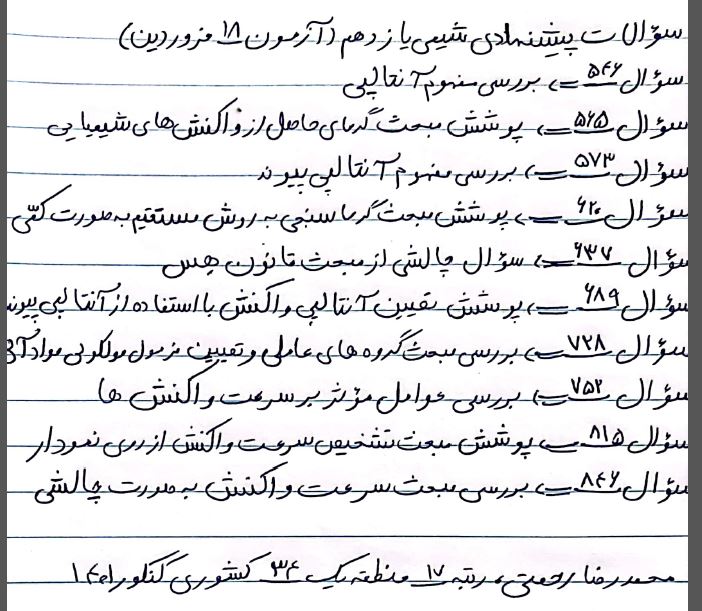 سؤالات پیشنهادی شیمی یازدهم (آزمون ۱۸ فروردین)
سؤال ۵۴۶ ⇐ بررسی مفهوم آنتالپی
سؤال ۵۶۵ ⇐ پوشش مبحث گرمای حاصل از واکنش‌های شیمیایی
سؤال ۵۷۳ ⇐ بررسی مفهوم آنتالپی پیوند
سؤال ۶۲۰ ⇐ پوشش مبحث گرماسنجی به روش مستقیم به صورت کمّی
سؤال ۶۳۷ ⇐ سؤال چالشی از مبحث قانون هس
سؤال ۶۸۹ ⇐ پوشش تعیین آنتالپی واکنش با استفاده از آنتالپی پیوند
سؤال ۷۲۸ ⇐ بررسی مبحث گروه های عاملی و تعیین فرمول مولکولی مواد
سؤال ۷۵۲ ⇐ بررسی عوامل مؤثر بر سرعت واکنش ها
سؤال ۸۱۵ ⇐ پوشش مبحث تشخیص سرعت واکنش از روی نمودار
سؤال ۸۴۶ ⇐ بررسی مبحث سرعت واکنش به صورت چالشی
محمدرضا رحمتی، رتبه ۱۷ منطقه یک ۳۴ کشوری کنکور ۱۴۰۱